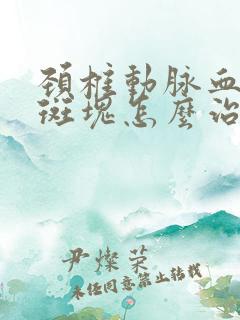 頚椎動脉血
斑塊怎麽治
尹燦荣
未经同意禁止转载